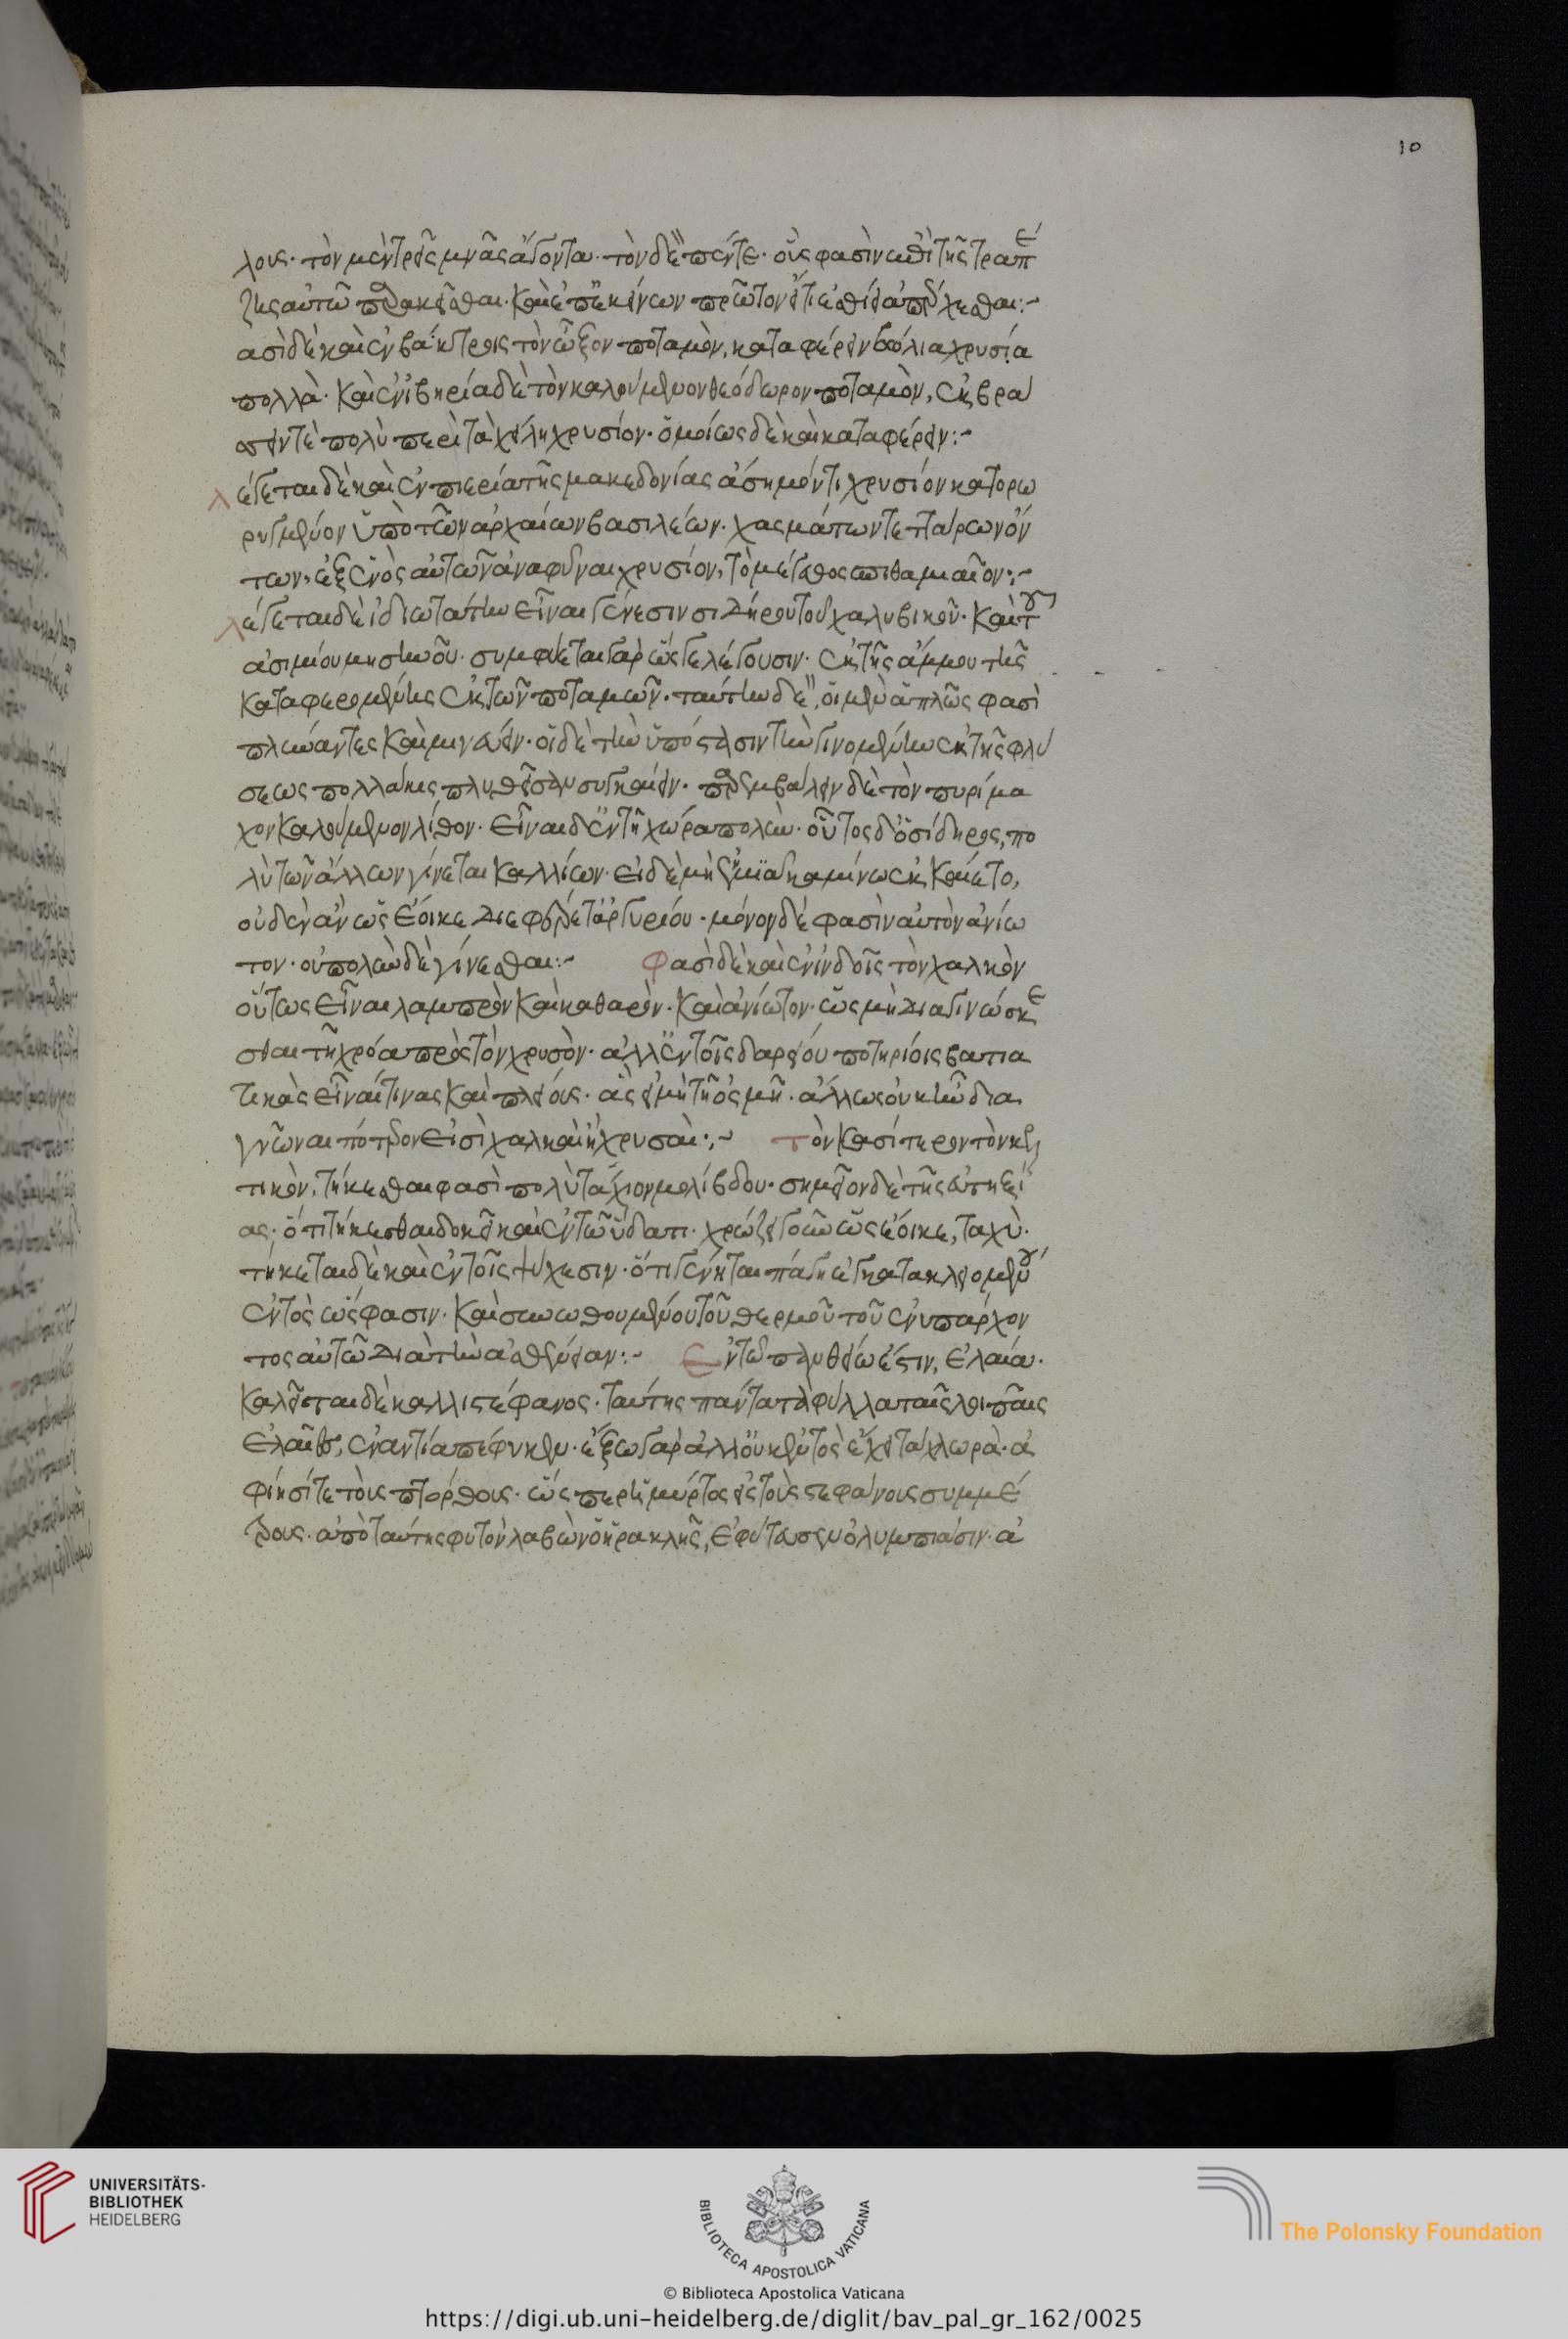 10
λους· τὸν μὲν τρεῖς μνᾶς ἄγοντα· τὸν δὲ πέντε· οὓς φασὶν ἐπὶ τῆς τραπέ
ζης αὐτῶ παρακεῖσθαι· καὶ ἐπ' ἐκείνων πρῶτον ἔτι ἐσθίειν ἀπάρχεσθαι:~
ασὶ δὲ καὶ ἐν βάκτροις τὸν ὦξον ποταμὸν, καταφέρειν βωλία χρυσία
πολλὰ· καὶ ἐν ἰβηρία δὲ τὸν καλούμενον θεόδωρον ποταμὸν, ἐκβρά
σειν τὲ πολὺ περὶ τὰ χείλη χρυσίον· ὁμοίως δὲ καὶ καταφέρειν:~
λέγεται δὲ καὶ ἐν πιερία τῆς μακεδονίας ἄσημόν τι χρυσίον κατορω
ρυγμένον ὑπὸ τῶν ἀρχαίων βασιλέων· χασμάτων τεττάρων ὄν
των, ἐξ ἑνὸς αὐτῶν ἀναφῦναι χρυσίον, τὸ μέγεθος σπιθαμιαῖον:~
λέγεται δὲ ἰδιωτάτην εἶναι γένεσιν σιδήρου τοῦ χαλυβικοῦ· καὶ τοῦ
ἀσιμίου μησηνοῦ· συμφύεται γὰρ ὥς γε λέγουσιν· ἐκ τῆς ἄμμου τῆς
καταφερομένης ἐκ τῶν ποταμῶν· ταύτην δὲ, οἱ μὲν ἁπλῶς φασὶ
πλύναντες καμινεύειν· οἱ δὲ τὴν ὑπόστασιν τὴν γινομένην ἐκ τῆς πλύ
σεως πολλάκις πλυθεῖσαν συγκαίειν· παρεμβάλειν δὲ τὸν πυρίμα
χον καλούμενον λίθον· εἶναι δ' ἐν τῆ χώρα πολὺν· οὗτος δ' ὁ σίδηρος, πο
λὺ τῶν ἄλλων γίνεται καλλίων· εἰ δὲ μὴ ἐν μιᾶ καμίνω ἐκαίετο,
οὐδὲν ἂν ὡς ἔοικε διέφερε τἀργυρίου· μόνον δέ φασὶν αὐτὸν ἀνίω
τον· οὐ πολὺν δὲ γίνεσθαι:~ Φασὶ δὲ καὶ ἐν ἰνδοῖς τὸν χαλκὸν
οὕτως εἶναι λαμπρὸν καὶ καθαρὸν· καὶ ἀνίωτον· ὡς μὴ διαγινώσκε
σθαι τῆ χρόα πρὸς τὸν χρυσὸν· ἀλλ' ἐν τοῖς δαρείου ποτηρίοις βατια
τικὰς εἶναί τινας καὶ πλείους· ἃς εἰ μὴ τῆ ὀσμῆ· ἄλλως οὐκ ἦν δια
γνῶναι πότερον εἰσὶ χαλκαῖ ἢ χρυσαῖ:~ τὸν κασίτερον τὸν κελ
τικὸν, τήκεσθαι φασὶ πολὺ τάχιον μολίβδου· σημεῖον δὲ τῆς εὐτηξί
ας· ὅτι τήκεσθαι δοκεῖ καὶ ἐν τῶ ὕδατι· χρώζει γοῦν ὡς ἔοικε, ταχύ·
τήκεται δὲ καὶ ἐν τοῖς ψύχεσιν· ὅτι γένηται πάγη ἐγκατακλειομένου
ἐντὸς ὥς φασιν· καὶ συνωθουμένου τοῦ θερμοῦ τοῦ ἐνυπάρχον
τος αὐτῶ διὰ τὴν ἀσθένειαν:~ Ἐν τῶ πανθείω ἐστὶν, ἐλαία·
καλεῖται δὲ καλλιστέφανος· ταύτης πάντα τὰ φύλλα ταῖς λοιπαῖς
ἐλαίαις, ἐναντία πέφυκεν· ἔξω γὰρ ἀλλ' οὐκ ἐντὸς ἔχει τὰ χλωρά· ἀ
φίησί τε τοὺς πτόρθους· ὥσπερ ἡ μύρτος εἰς τοὺς στεφάνους συμμέ
τρους· ἀπὸ ταύτης φυτὸν λαβὼν ὁ ἡρακλῆς, ἐφύτευσεν ὀλυμπίασιν· ἀ
UNIVERSITÄTS-
BIBLIOTHEK
HEIDELBERG
BIBLIOTECA APOSTOLICA VATICANA
The Polonsky Foundation
© Biblioteca Apostolica Vaticana
https://digi.ub.uni-heidelberg.de/diglit/bav_pal_gr_162/0025